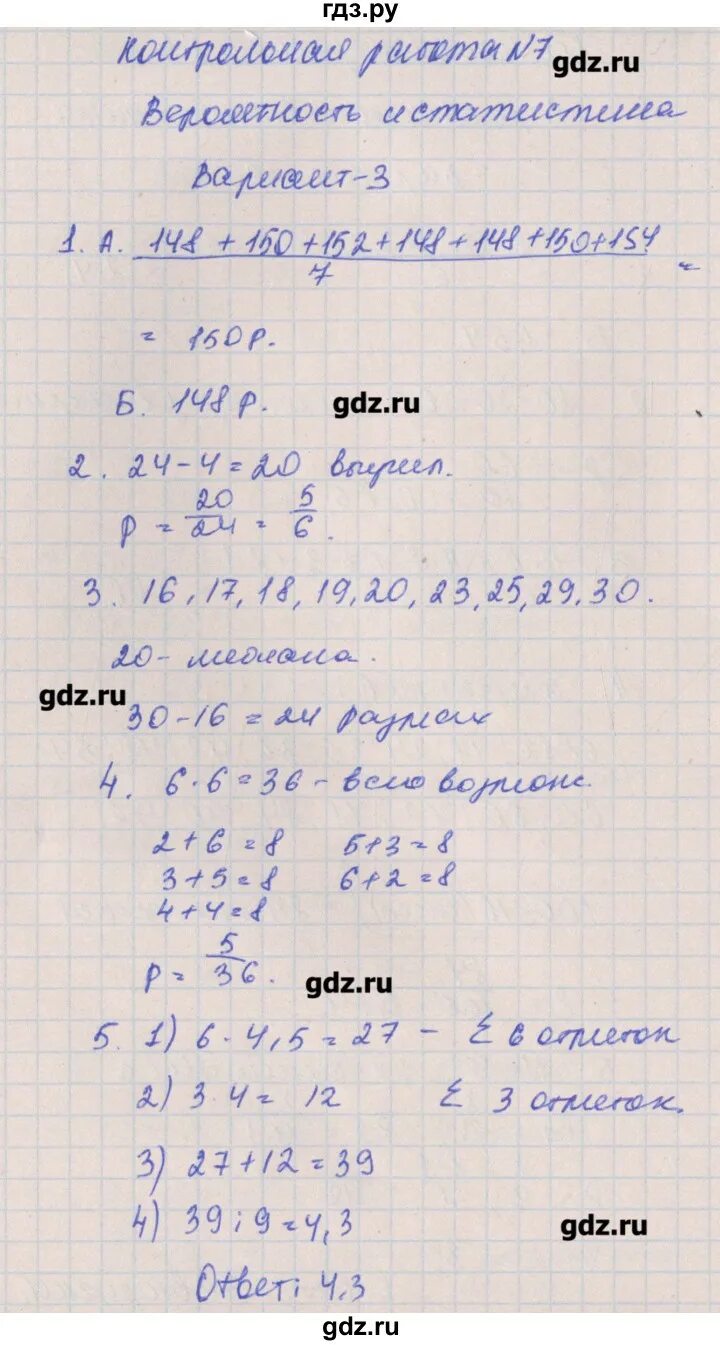 гдз.ру
Контрольная работа №7
gdz.ru
Вероятность и статистика
Вариант-3
1. А. 148 + 150 + 152 + 148 + 148 + 150 + 154
7 =
= 150 р.
Б. 148 р.
gdz.ru
2. 24 - 4 = 20 выучил.
P = 20/24 = 5/6.
3. 16, 17, 18, 19, 20, 23, 25, 29, 30.
20 - медиана.
gdz.ru
30 - 16 = 24 размах
4. 6 · 6 = 36 - всего возможн.
2 + 6 = 8 5 + 3 = 8
3 + 5 = 8 6 + 2 = 8
4 + 4 = 8
P = 5/36.
gdz.ru
5. 1) 6 · 4,5 = 27 - Σ 6 отметок
2) 3 · 4 = 12 Σ 3 отметок.
3) 27 + 12 = 39
4) 39 : 9 = 4,3
gdz.ru
Ответ: 4,3
gdz.ru